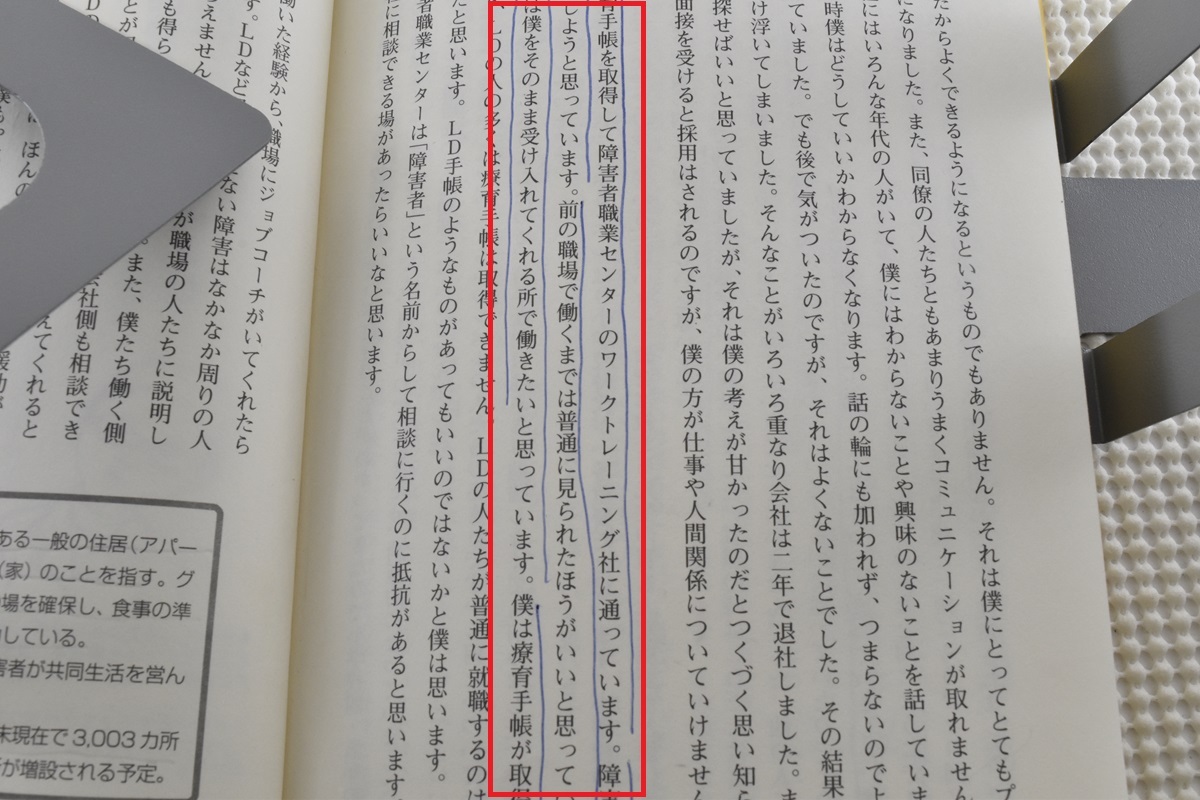 たからよくできるようになるというものでもありません。それは僕にとってとてもプ
になりました。また、同僚の人たちともあまりうまくコミュニケーションが取れません
にはいろんな年代の人がいて、僕にはわからないことや興味のないことを話していま
時僕はどうしていいかわからなくなります。話の輪にも加われず、つまらないので
ていました。でも後で気がついたのですが、それはよくないことでした。その結果
け浮いてしまいました。そんなことがいろいろ重なり会社は二年で退社しました。ま
探せばいいと思っていましたが、それは僕の考えが甘かったのだとつくづく思い知ら
面接を受けると採用はされるのですが、僕の方が仕事や人間関係についていけません
手帳を取得して障害者職業センターのワークトレーニング社に通っています。障
しようと思っています。前の職場で働くまでは普通に見られたほうがいいと思って
は僕をそのまま受け入れてくれる所で働きたいと思っています。僕は療育手帳が取
LDの人の多くは療育手帳は取得できません。LDの人たちが普通に就職するのは
たと思います。LD手帳のようなものがあってもいいのではないかと僕は思います。
者職業センターは「障害者」という名前からして相談に行くのに抵抗があると思います
に相談できる場があったらいいなと思います。
働いた経験から、職場にジョブコーチがいてくれたら
す。LDなど
ない障害はなかなか周りの人
えません
が職場の人たちに説明し
も得ら
また、僕たち働く側
会社側も相談でき
えてくれると
ほんの
ある一般の住居(アパー
(家)のことを指す。グ
場を確保し、食事の準
している。
害者が共同生活を営ん
末現在で3,003カ所
が増設される予定。